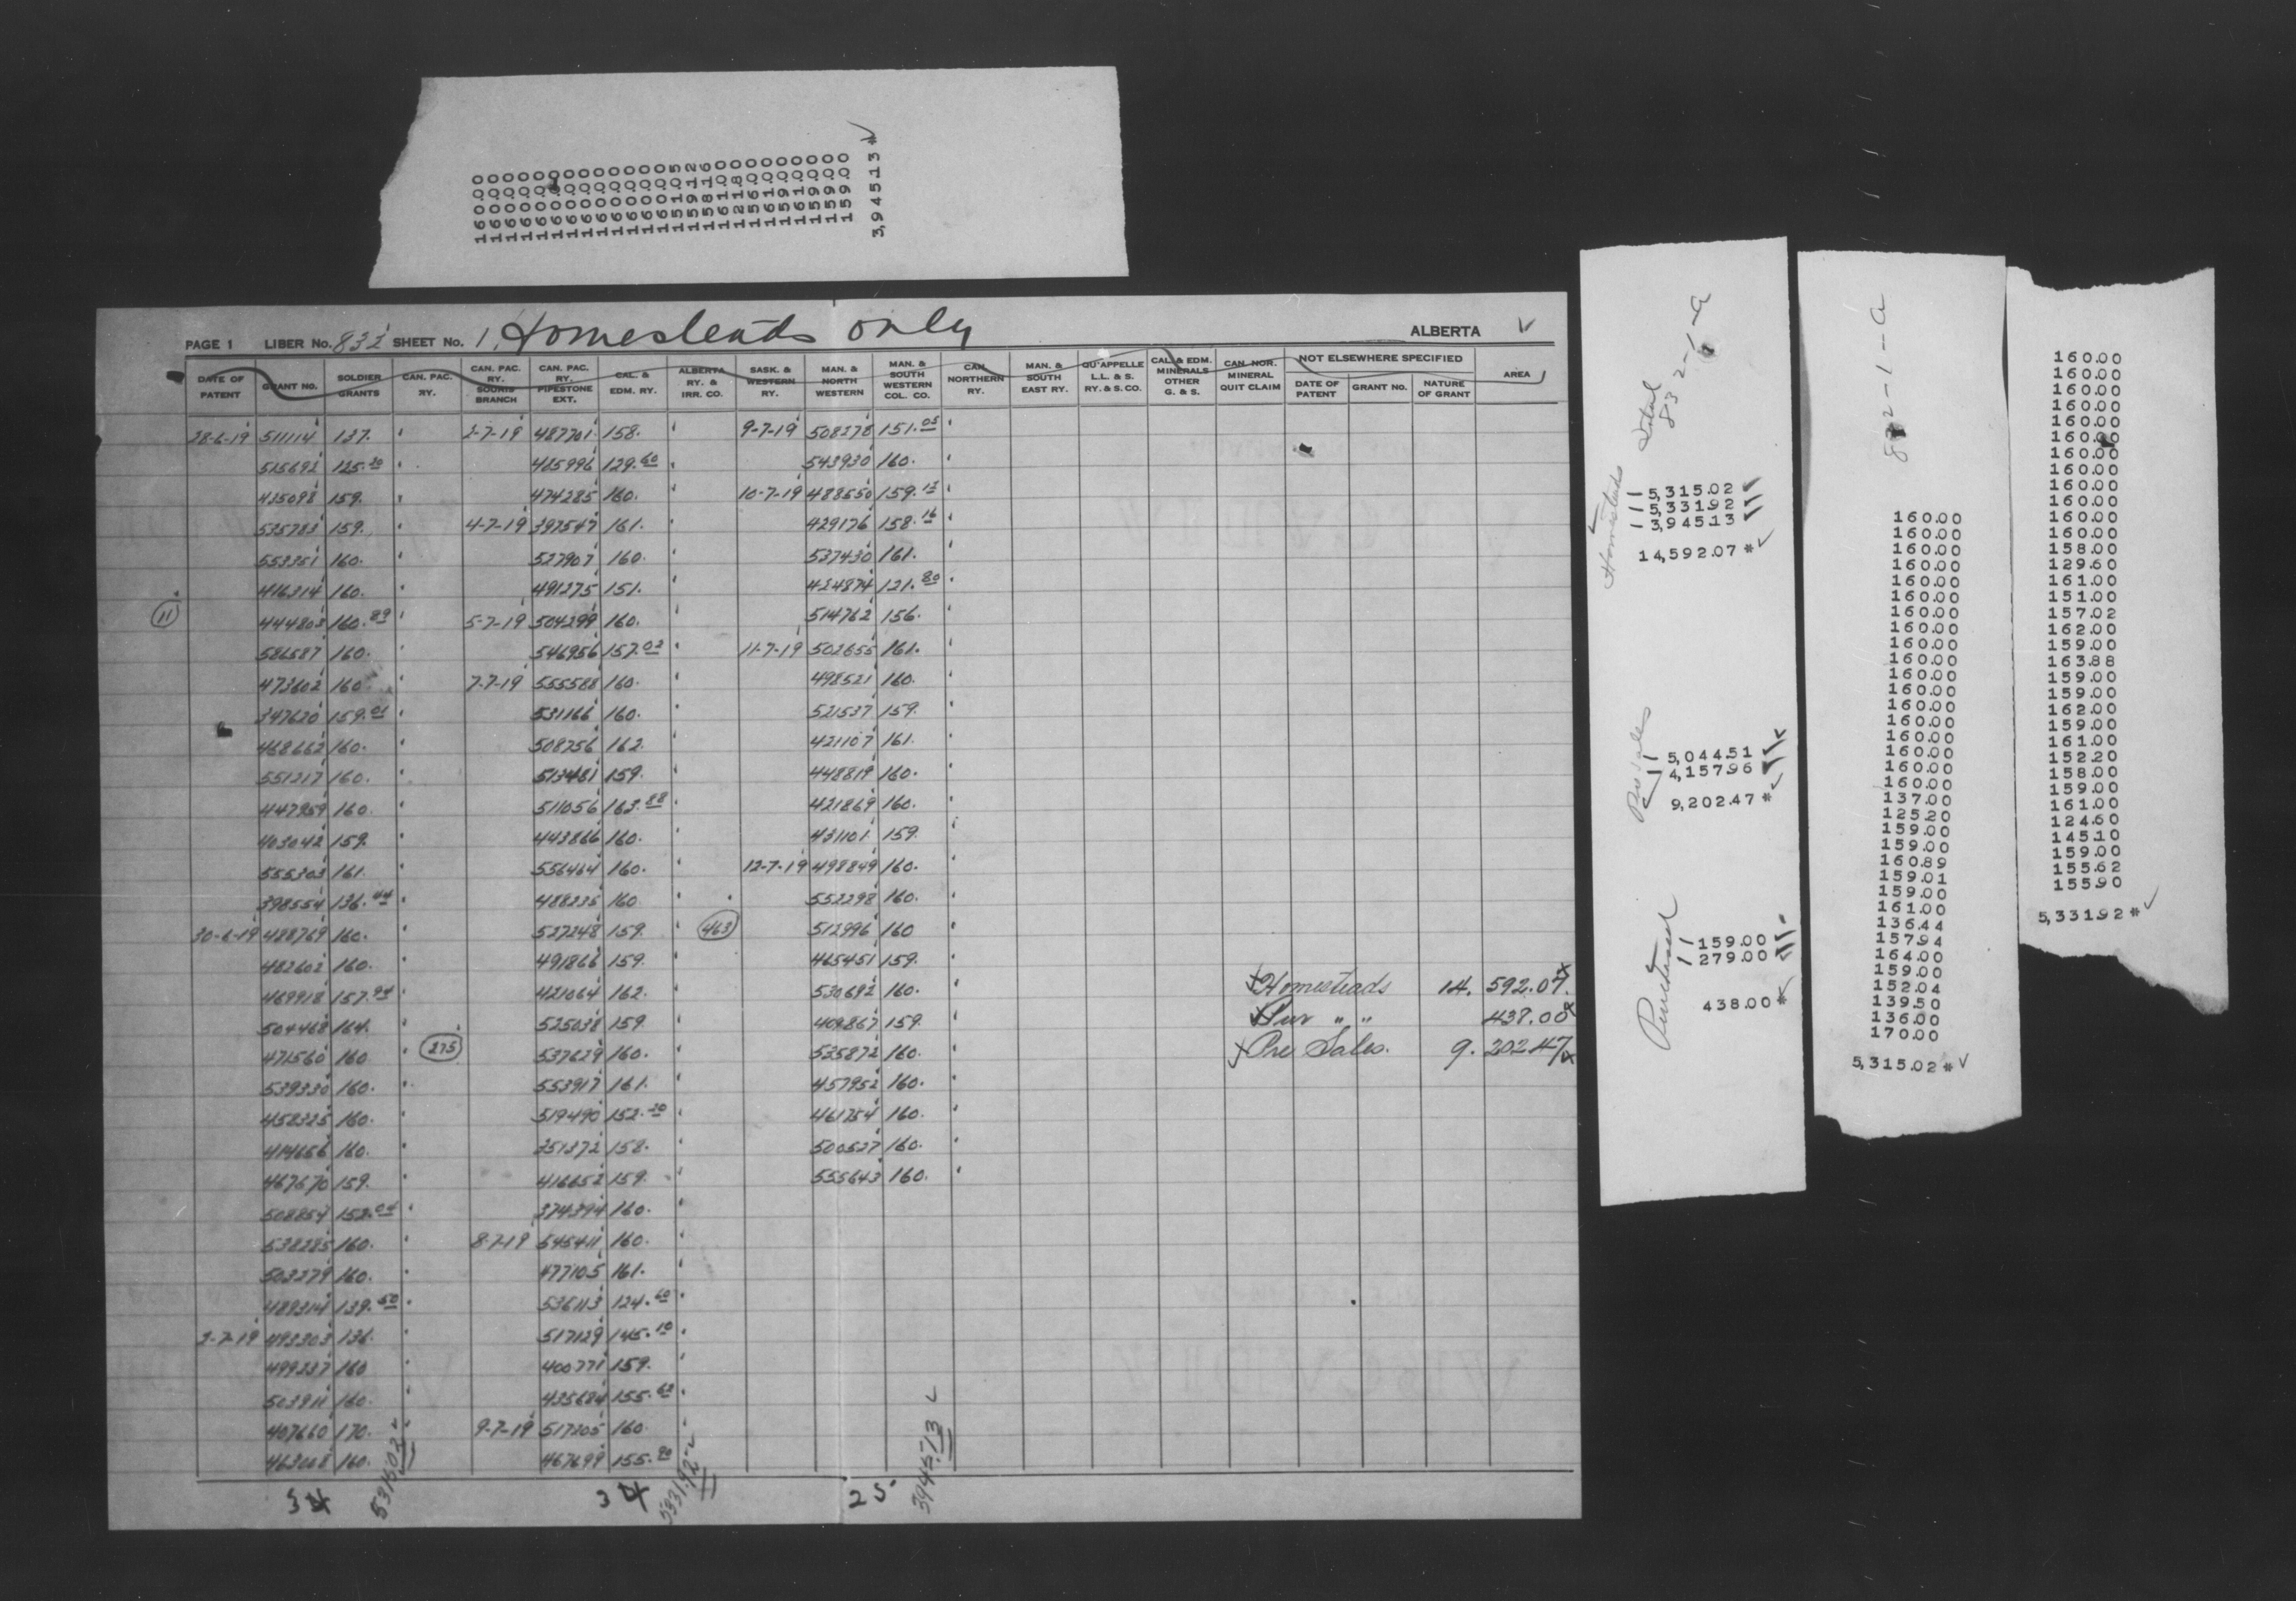 160.00
160.00
160.00
160.00
160.00
160.00
160.00
160.00
160.00
160.00
160.00
160.00
160.00
151.05
159.12
158.16
161.00
121.80
156.00
161.00
159.00
161.00
159.00
159.00
3,945.13 *
PAGE 1 LIBER No. 832 SHEET No. 1 Homesteads only ALBERTA
DATE OF PATENT GRANT NO. SOLDIER GRANTS CAN. PAC. RY. CAN. PAC. RY. SOURIS BRANCH CAN. PAC. RY. PIPESTONE EXT. CAL. & EDM. RY. ALBERTA RY. & IRR. CO. SASK. & WESTERN RY. MAN. & NORTH WESTERN MAN. & SOUTH WESTERN COL. CO. CAN. NORTHERN RY. MAN. & SOUTH EAST RY. QU'APPELLE L.L. & S. RY. & S. CO. CAL. & EDM. MINERALS OTHER G. & S. CAN. NOR. MINERAL QUIT CLAIM NOT ELSEWHERE SPECIFIED DATE OF PATENT GRANT NO. NATURE OF GRANT AREA
28-6-19 511114 137. 2-7-19 487701 158. 9-7-19 508278 151.05
515692 125.20 465996 129.60 543930 160.
425098 159. 474285 160. 10-7-19 488550 159.12
535783 159. 4-7-19 397547 161. 429176 158.16
553351 160. 527907 160. 537430 161.
416314 160. 491275 151. 424874 121.80
11 444803 160.89 5-7-19 504299 160. 514762 156.
526587 160. 546956 157.02 11-7-19 502655 161.
473602 160. 7-7-19 555588 160. 498521 160.
347620 159.01 531166 160. 521537 159.
468662 160. 508756 162. 421107 161.
551217 160. 513481 159. 448819 160.
447959 160. 511056 163.88 421869 160.
403042 159. 443866 160. 431101 159.
555303 161. 556464 160. 12-7-19 498849 160.
398554 136.44 488235 160. 552298 160.
30-6-19 428769 160. 527248 159. 463 512996 160
482602 160. 491866 159. 465451 159.
469918 157.94 421064 162. 530692 160. Homesteads 14. 592.07
504468 164. 525038 159. 409867 159. Pur " " 438.00
471560 160 275 537629 160. 535872 160. Pre Sales. 9. 202.47
539330 160. 553917 161. 457952 160.
458325 160. 519490 152.20 461754 160.
414656 160. 351372 158. 500527 160.
467670 159. 416652 159. 555643 160.
508854 152.04 374394 160.
538285 160. 8-7-19 545411 160.
503279 160. 477105 161.
489314 139.50 536113 124.60
2-7-19 493303 136. 517129 145.10
499237 160 400771 159.
503911 160. 435684 155.62
407660 170. 9-7-19 517205 160
463008 160. 467699 155.90
34 5315.02 34 5331.92 25 3945.13
Total 832-1-a
Homesteads
5,315.02
5,331.92
3,945.13
14,592.07 *
Pre Sales
5,044.51
4,157.96
9,202.47 *
Purchased
159.00
279.00
438.00 *
832-1-a
160.00
160.00
160.00
160.00
160.00
160.00
160.00
160.00
160.00
160.00
160.00
160.00
160.00
160.00
160.00
160.00
160.00
160.00
137.00
125.20
159.00
159.00
160.89
159.01
159.00
161.00
136.44
157.94
164.00
159.00
152.04
139.50
136.00
170.00
5,315.02 *
160.00
160.00
160.00
160.00
160.00
160.00
160.00
160.00
160.00
160.00
160.00
160.00
158.00
129.60
161.00
151.00
157.02
162.00
159.00
163.88
159.00
159.00
162.00
159.00
161.00
152.20
158.00
159.00
161.00
124.60
145.10
159.00
155.62
155.90
5,331.92 *